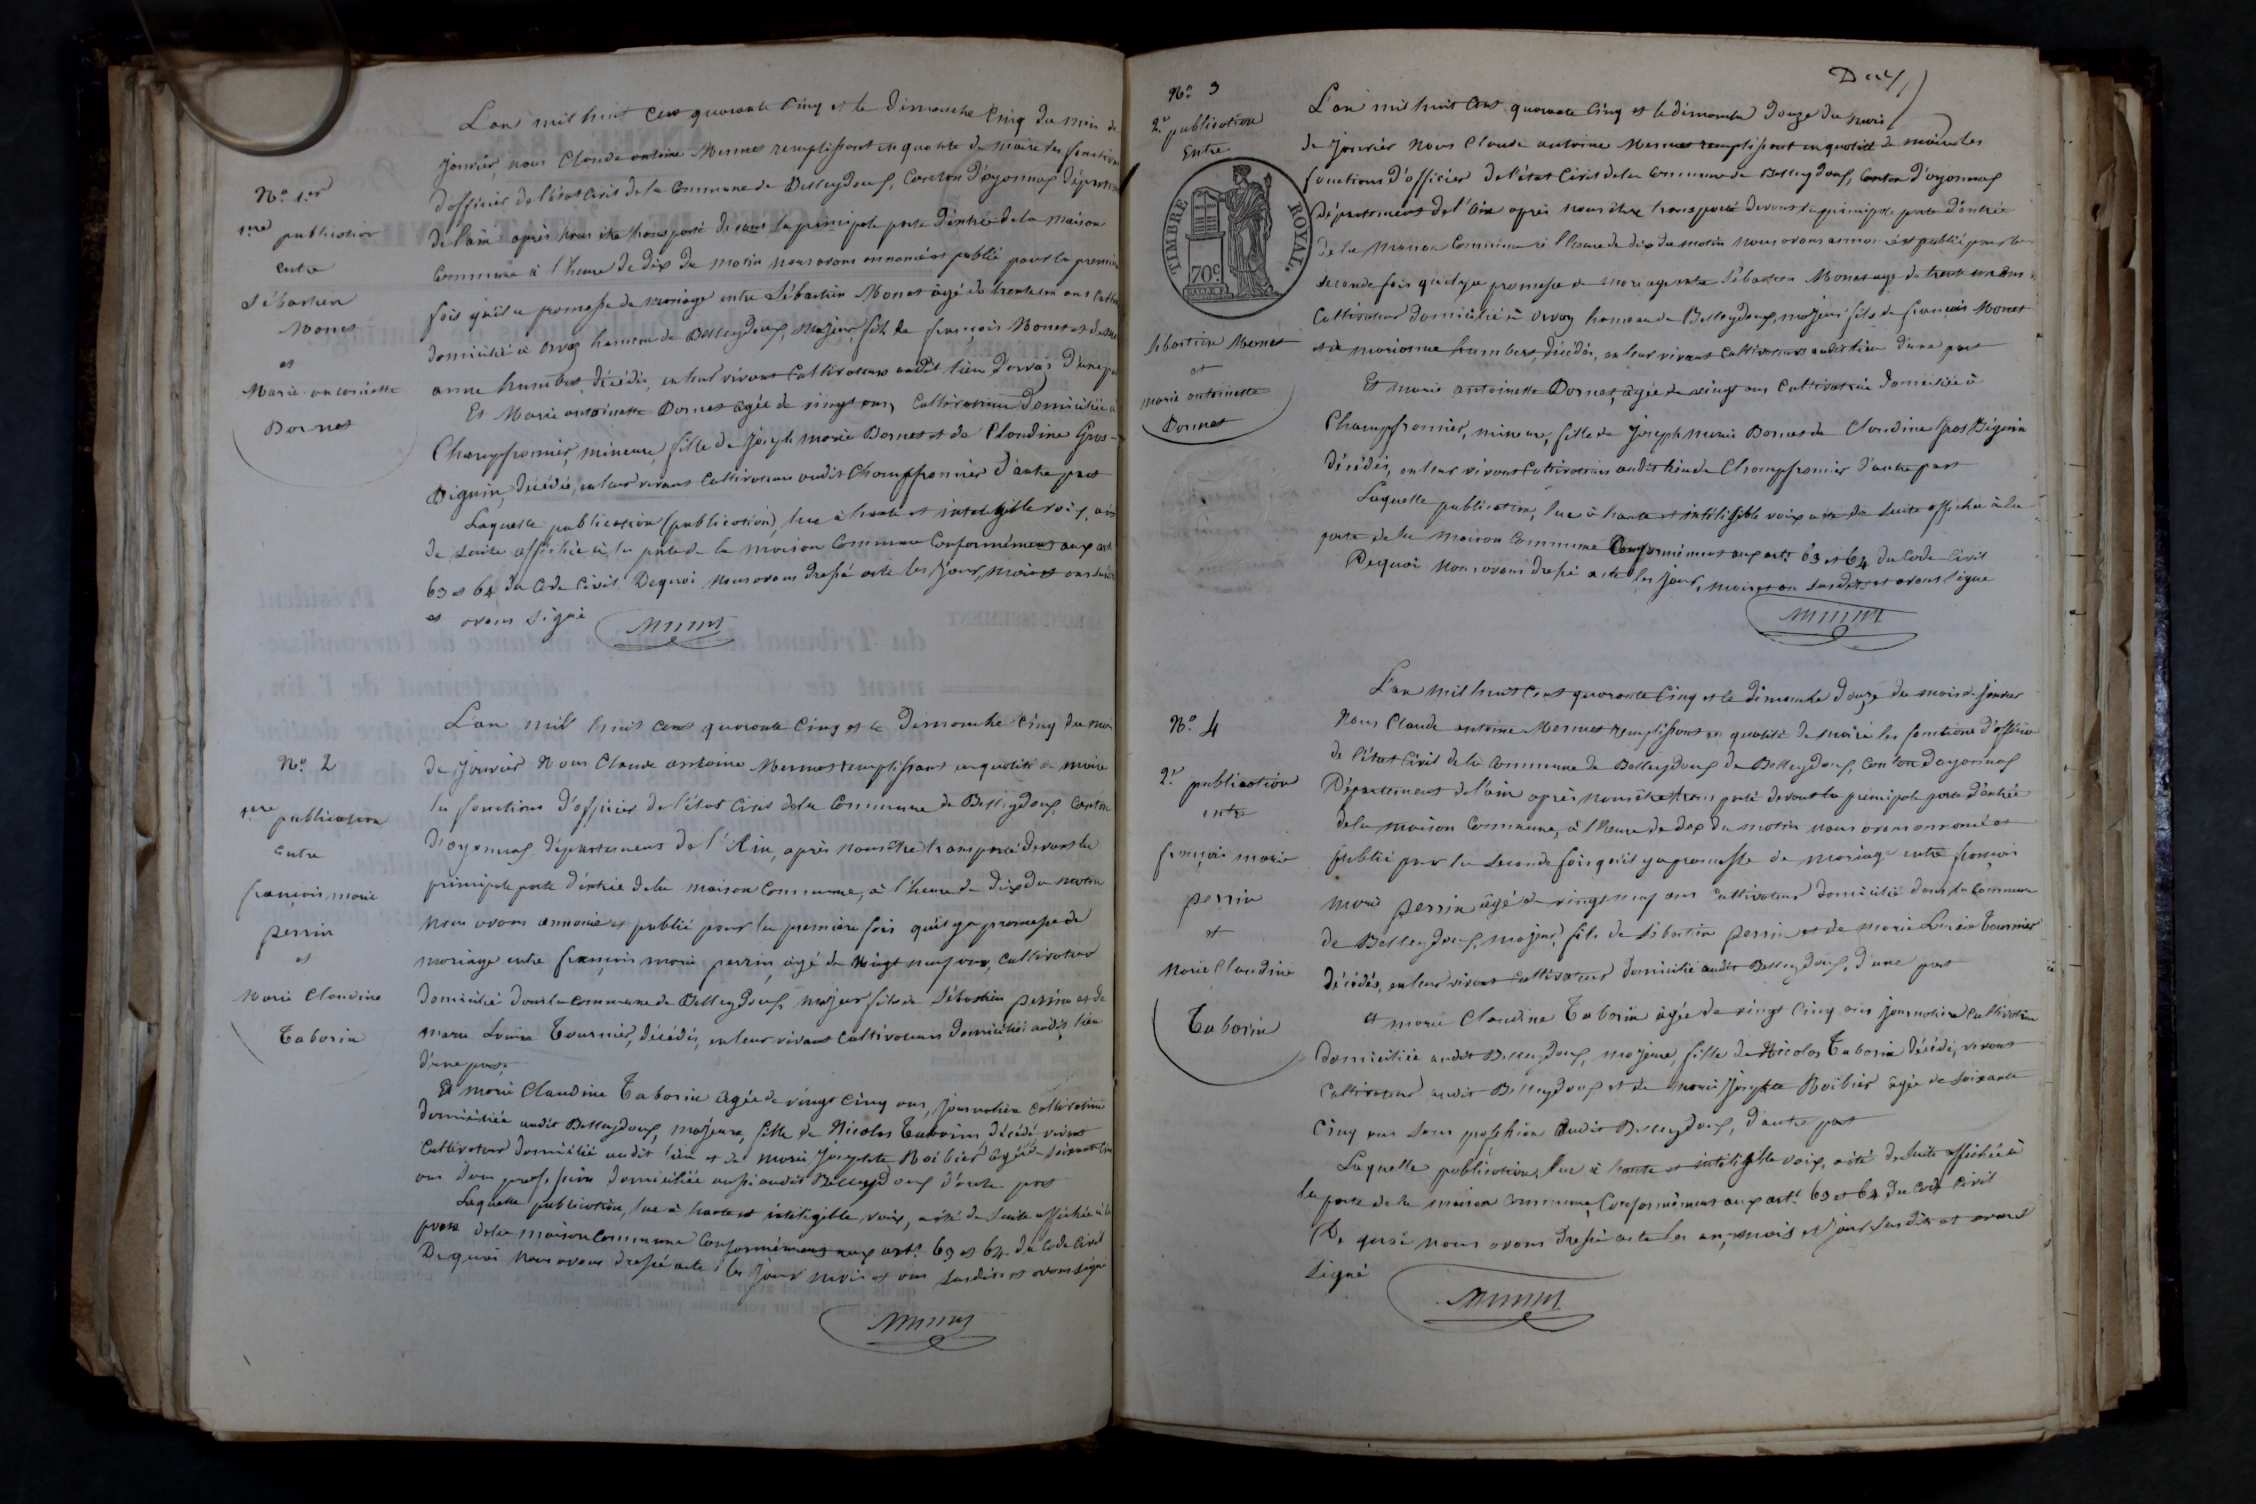 No 1er
1ère publication
entre
Sébastien
Monet
et
Marie antoinette
Bornet
L'an mil huit cent quarante cinq et le dimanche cinq du mois de
janvier, nous Claude antoine Mermet remplissant en qualité de maire les fonctions
d'officier de l'état civil de la commune de Belleydoux, Canton d'oyonnax département
de l'ain après nous être transporté devant la principale porte d'entrée de la maison
Commune à l'heure de dix du matin nous avons annoncé et publié pour la première
fois qu'il y a promesse de mariage entre Sébastien Monet âgé de trente un ans
domicilié à orvaz hameau de Belleydoux, majeur, fils de françois Monet et de
anne humbert, décédés, en leur vivant Cultivateurs audit lieu d'orvaz d'une part
Et Marie antoinette Bornet âgée de vingt ans, Cultivatrice domiciliée à
Champfromier, mineure, fille de Joseph marie Bornet et de Claudine Gros-
Biguin, décédés, en leur vivant Cultivateurs audit Champfromier d'autre part
Laquelle publication (publication), lue à haute et intelligible voix, a
de suite affichée à la porte de la maison Commune Conformément aux art
63 et 64 du Code Civil Dequoi nous avons dressé acte les jour, mois et an susdits
et avons signé
Mermet
No 2
1ère publication
entre
françois marie
perrin
et
Marie Claudine
Taborin
L'an mil huit cent quarante cinq et le dimanche cinq du mois
de janvier Nous Claude antoine Mermet remplissant en qualité de maire
les fonctions d'officier de l'état civil de la Commune de Belleydoux, Canton
d'oyonnax département de l'Ain, après nous être transporté devant la
principale porte d'entrée de la maison Commune, à l'heure de dix du matin
nous avons annoncé et publié pour la première fois qu'il y a promesse de
mariage entre françois marie perrin, âgé de vingt neuf ans, cultivateur
domicilié dans la commune de Belleydoux, majeur fils de Sébastien perrin et de
marie Louise Tournier, décédés, en leur vivant Cultivateurs domiciliés audit lieu
d'une part,
Et marie Claudine Taborin âgée de vingt cinq ans, journalière cultivatrice
domiciliée audit Belleydoux, majeure, fille de Nicolas Taborin décédé, vivant
Cultivateur domicilié audit lieu et de marie Josephte Roibier âgée de soixante cinq
ans sans profession domiciliée aussi audit Belleydoux d'autre part
Laquelle publication, lue à haute et intelligible voix, a été de suite affichée à la
porte de la maison Commune Conformément aux artt 63 et 64 du Code Civil
Dequoi nous avons dressé acte les jour mois et an susdits et avons signé
Mermet
No 3
2e publication
Entre
TIMBRE ROYAL.
70c
Sébastien Monet
et
marie antoinette
Bornet
Deux
L'an mil huit cent quarante cinq et le dimanche douze du mois
de janvier Nous Claude antoine Mermet remplissant en qualité de maire les
fonctions d'officier de l'état Civil de la Commune de Belleydoux, Canton d'oyonnax
Département de l'Ain après nous être transporté devant la principale porte d'entrée
de la Maison Commune à l'heure de dix du matin nous avons annoncé et publié pour la
seconde fois qu'il y a promesse de mariage entre Sébastien Monet âgé de trente un ans
Cultivateur domicilié à orvaz hameau de Belleydoux, majeur fils de françois Monet
et de marianne humbert, décédés, en leur vivant Cultivateurs audit lieu d'une part
Et marie antoinette Bornet, âgée de vingt ans Cultivatrice domiciliée à
Champfromier, mineure, fille de Joseph marie Bornet de Claudine Gros Biguin
décédés, en leur vivant Cultivateurs audit lieu de Champfromier d'autre part
Laquelle publication, lue à haute et intelligible voix a été de suite affichée à la
porte de la maison Commune Conformément aux artt 63 et 64 du Code Civil
Dequoi nous avons dressé acte les jour, mois et an susdits et avons signé
Mermet
No 4
2e publication
entre
françois marie
perrin
et
Marie Claudine
Taborin
L'an mil huit cent quarante cinq et le dimanche douze du mois de janvier
Nous Claude antoine Mermet remplissant en qualité de maire les fonctions d'officier
de l'état civil de la Commune de Belleydoux de Belleydoux, Canton d'oyonnax
Département de l'ain après nous être transporté devant la principale porte d'entrée
de la maison Commune, à l'heure de dix du matin nous avons annoncé et
publié pour la seconde fois qu'il y a promesse de mariage entre françois
marie perrin âgé de vingt neuf ans Cultivateur domicilié dans la Commune
de Belleydoux, majeur, fils de Sébastien perrin et de marie Louise Tournier
décédés, en leur vivant cultivateurs domicilié audit Belleydoux, d'une part
et marie Claudine Taborin âgée de vingt cinq ans journalière Cultivatrice
domiciliée audit Belleydoux, majeure, fille de Nicolas Taborin décédé, vivant
Cultivateur audit Belleydoux et de marie Josephte Roibier âgée de soixante
cinq ans sans profession audit Belleydoux, d'autre part
Laquelle publication, lue à haute et intelligible voix, a été de suite affichée à
la porte de la maison Commune, Conformément aux artt 63 et 64 du Code Civil
De quoi nous avons dressé acte les an, mois et jour susdits et avons
signé
Mermet